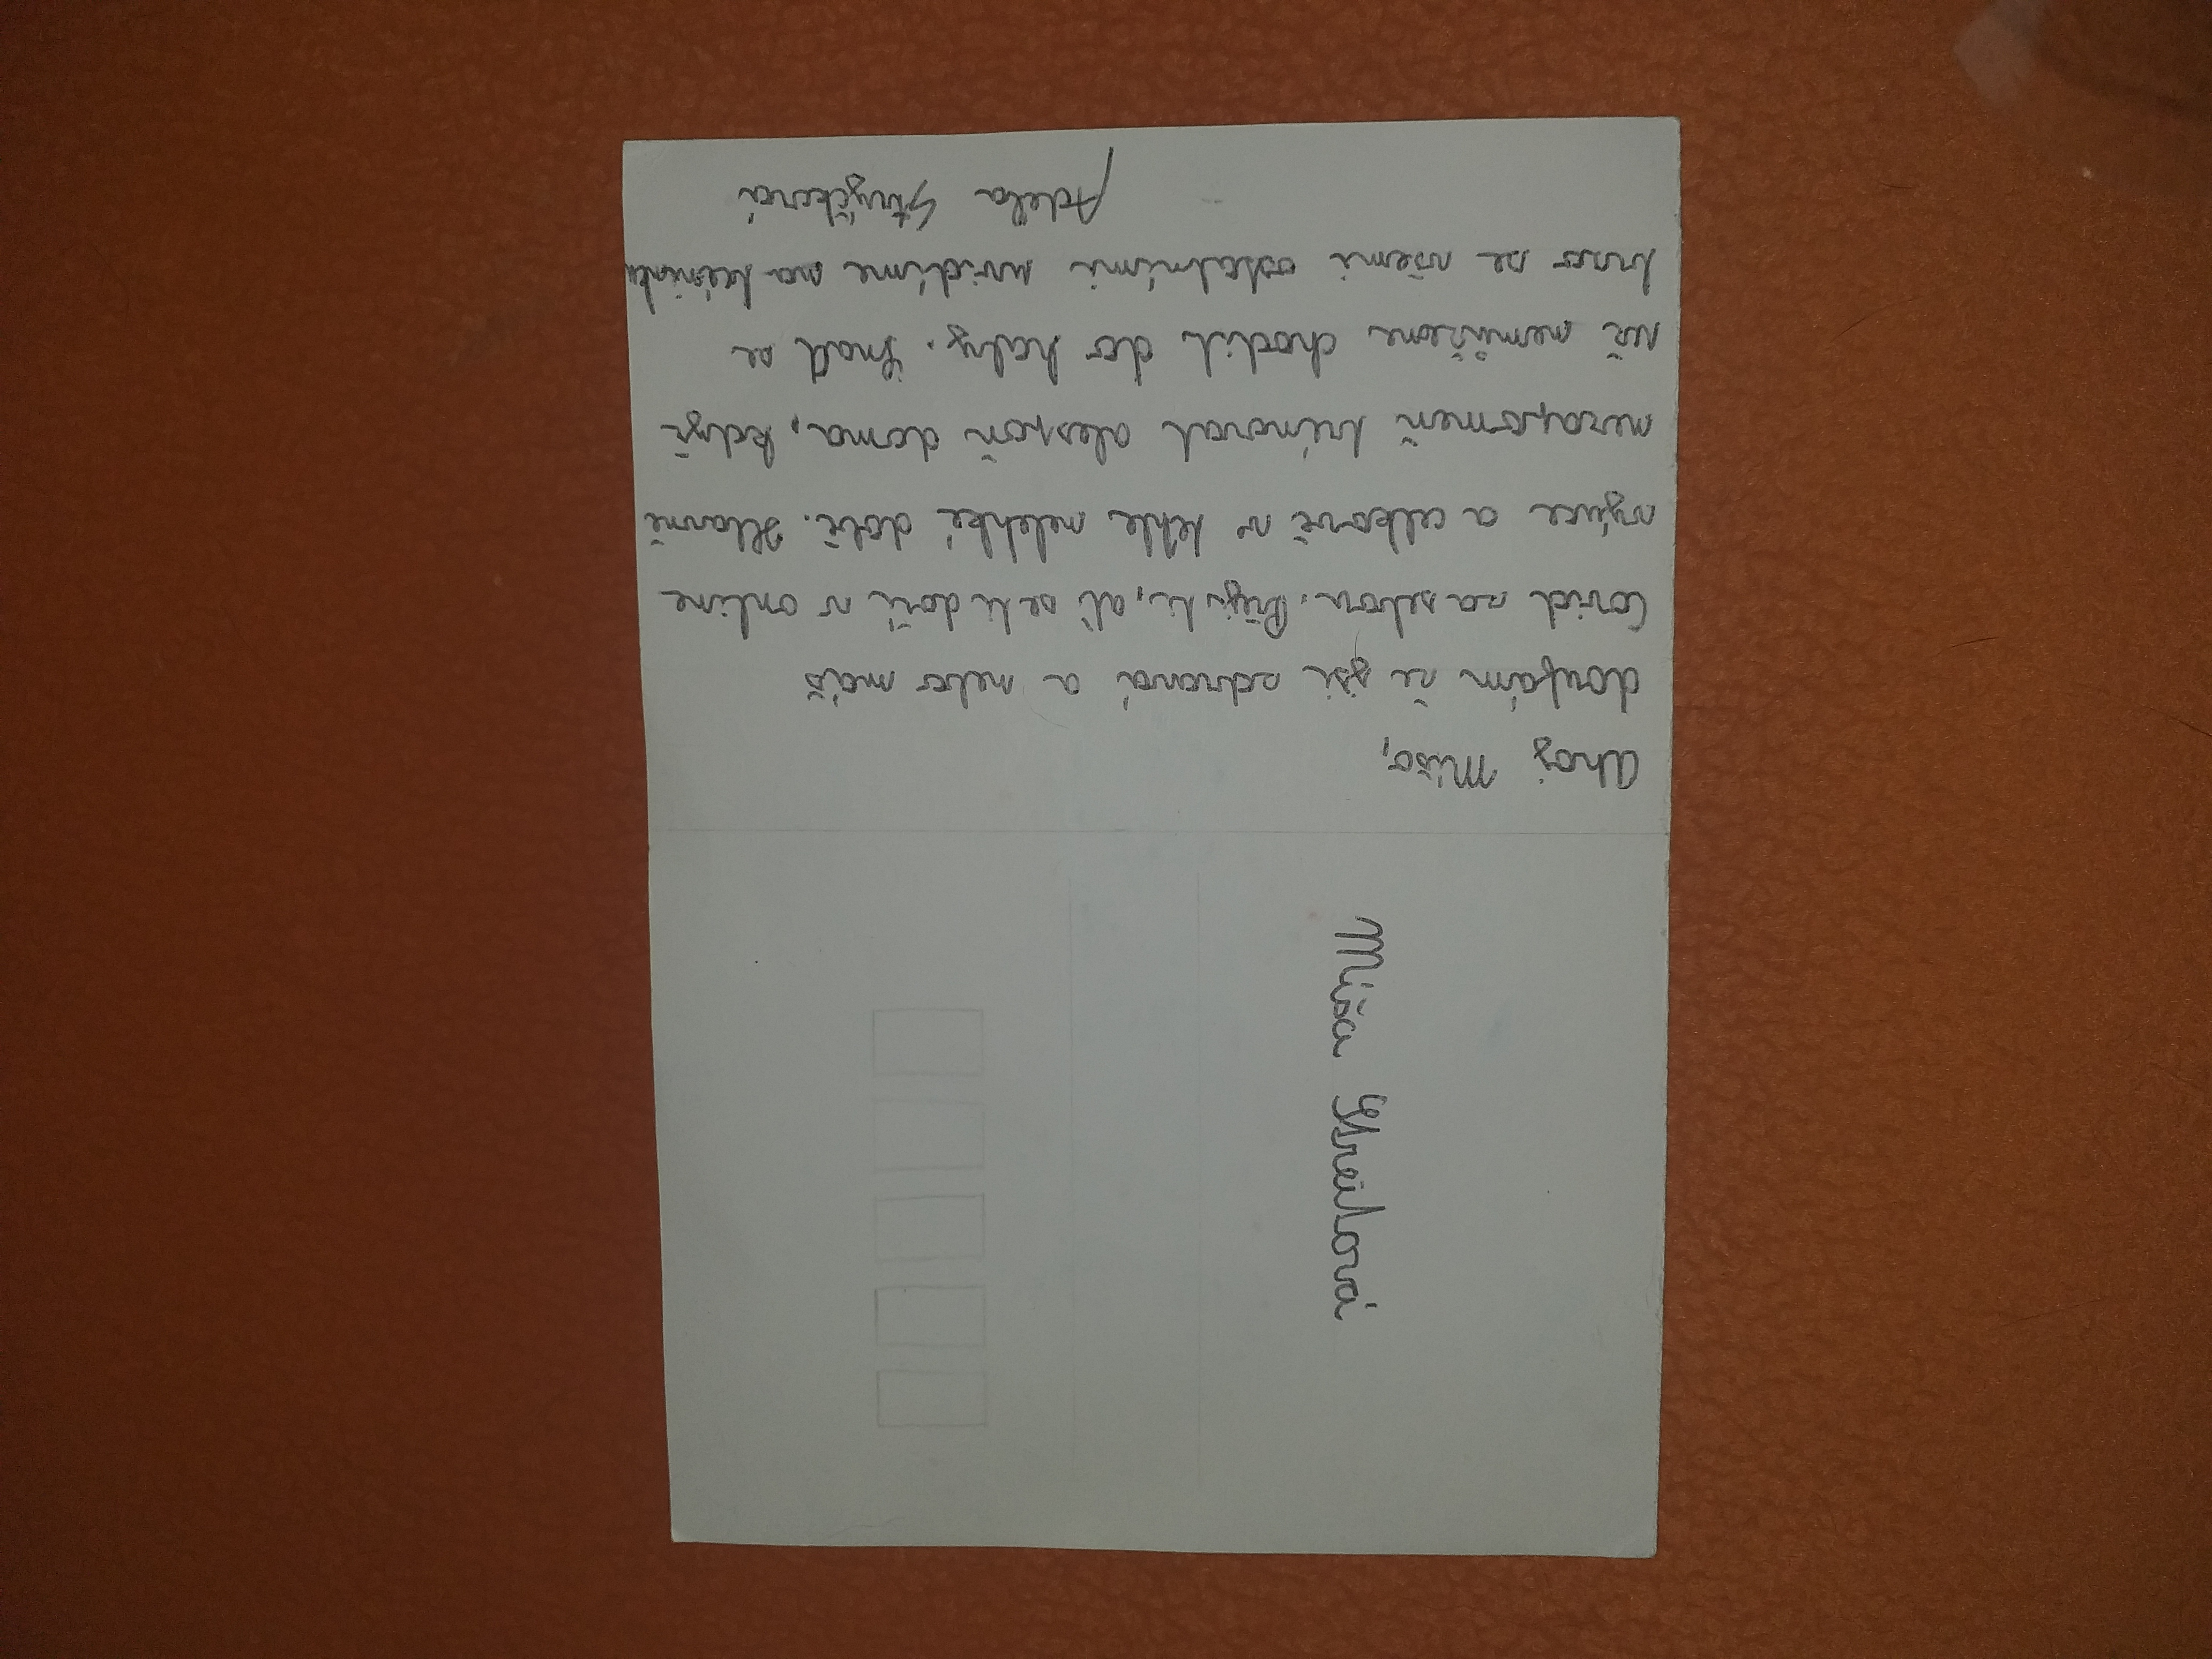 Ahoj Mišo,
doufám že jsi zdravá a nebo máš
Covid za sebou. Přeju ti, ať se ti daří v online
výuce a celkově v téhle nelehké době. Hlavně
nezapomeň trénovat alespoň doma, když
už nemůžeme chodit do haly. Snad se
brzo se všemi ostatními uvidíme na tréninku
Adéla Strýčková
Míša